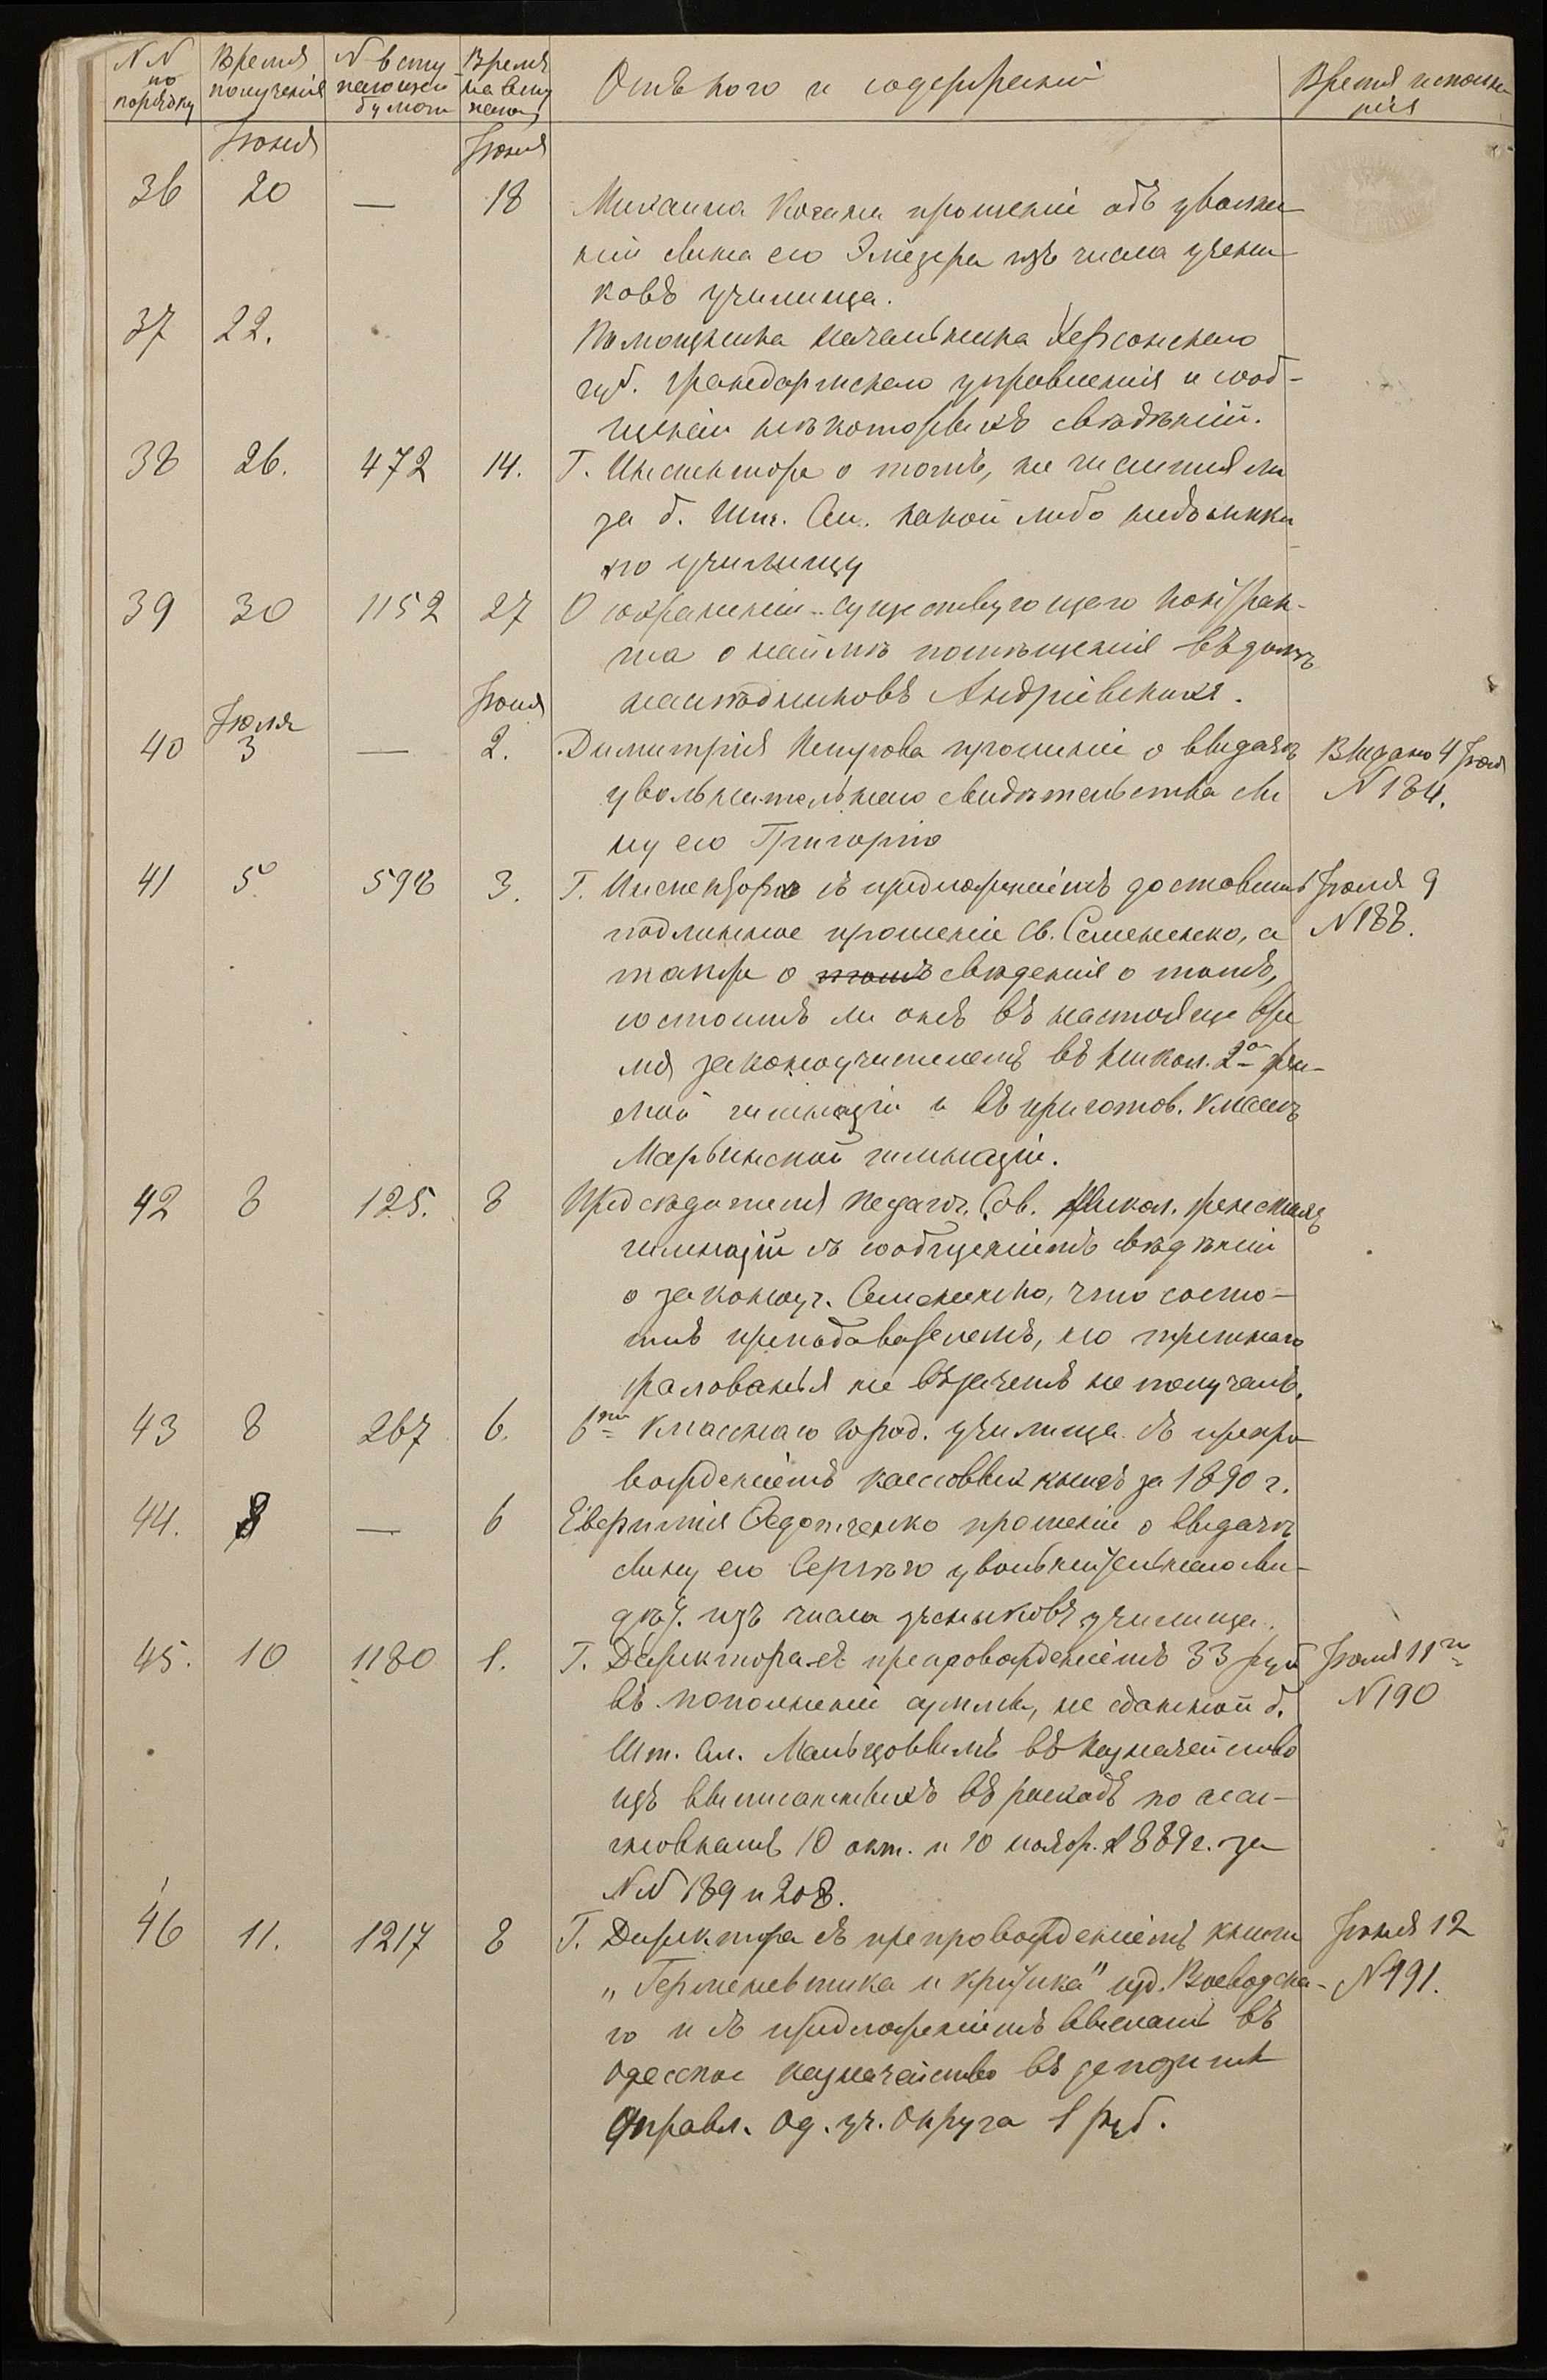 NN по порядку | Время полученія | N всту пающей бумаги | Время на всту пающ. | Отъ кого и содержаніе | Время исполне нія
Іюня | Іюня
36 | 20 | — | 18 | Михаила прошеніе объ увольне
ніи сына его изъ числа учени-
ковъ училища.
37 | 22. | Помощника начальника Херсонскаго
губ. жандармскаго управленія и сооб-
щеніи нѣкоторыхъ свѣдѣній.
38 | 26. | 472 | 14. | Г. Инспектора о томъ, не числится ли
за б. Шт. См. какой либо недоимки
по училищу
39 | 30 | 1152 | 27 | О сохраненіи существующаго контрак-
та о наймѣ помѣщенія въ домѣ
наслѣдниковъ Андріевскихъ.
Іюля | Іюля
40 | 3 | — | 2. | Димитрія прошеніе о выдачѣ | Выдано 4 Іюля
увольнительнаго свидѣтельства сы | N 184.
ну его Григорію
41 | 5 | 598 | 3. | Г. Инспектора съ предложеніемъ доставить | Іюля 9
подлинное прошеніе Св. Семененко, а | N 188.
также о свѣденія о томъ,
состоитъ ли онъ въ настояще вре
мя законоучителемъ въ Никол. 2-й жен-
ской гимназіи и въ приготов. классѣ
Маріинской гимназіи.
42 | 8 | 125. | 8 | Предсѣдателя Педагог. Сов. Никол. женскихъ
гимназій съ сообщеніемъ свѣдѣній
о законоуч. Семененко, что состо-
итъ преподавателемъ, но
жалованья не получаетъ.
43 | 8 | 267 | 6. | 6ти класснаго город. училища съ препро
вожденіемъ кассовыхъ книгъ за 1890 г.
44. | 8 | — | 6 | Федотченко прошеніе о выдачѣ
сыну его Сергѣю увольнительнаго сви-
дѣт. изъ числа учениковъ училища.
45. | 10 | 1180 | 1. | Г. Директора съ препровожденіемъ 33 руб | Іюля 11го
въ пополненіе суммы, не сданной б. | N 190
Шт. См. Мальцовымъ въ Казначейство
изъ выписанныхъ въ расходъ по асси-
гновкамъ 10 окт. и 10 ноябр. 1889 г. за
NN 189 и 208.
46 | 11. | 1217 | 8 | Г. Директора съ препровожденіемъ книги | Іюля 12
„Герменевтика и критика" изд. Воеводска- | N 191.
го и съ предложеніемъ выслать въ
Одесское казначейство въ депозитъ
Управл. Од. уч. Округа 1 руб.